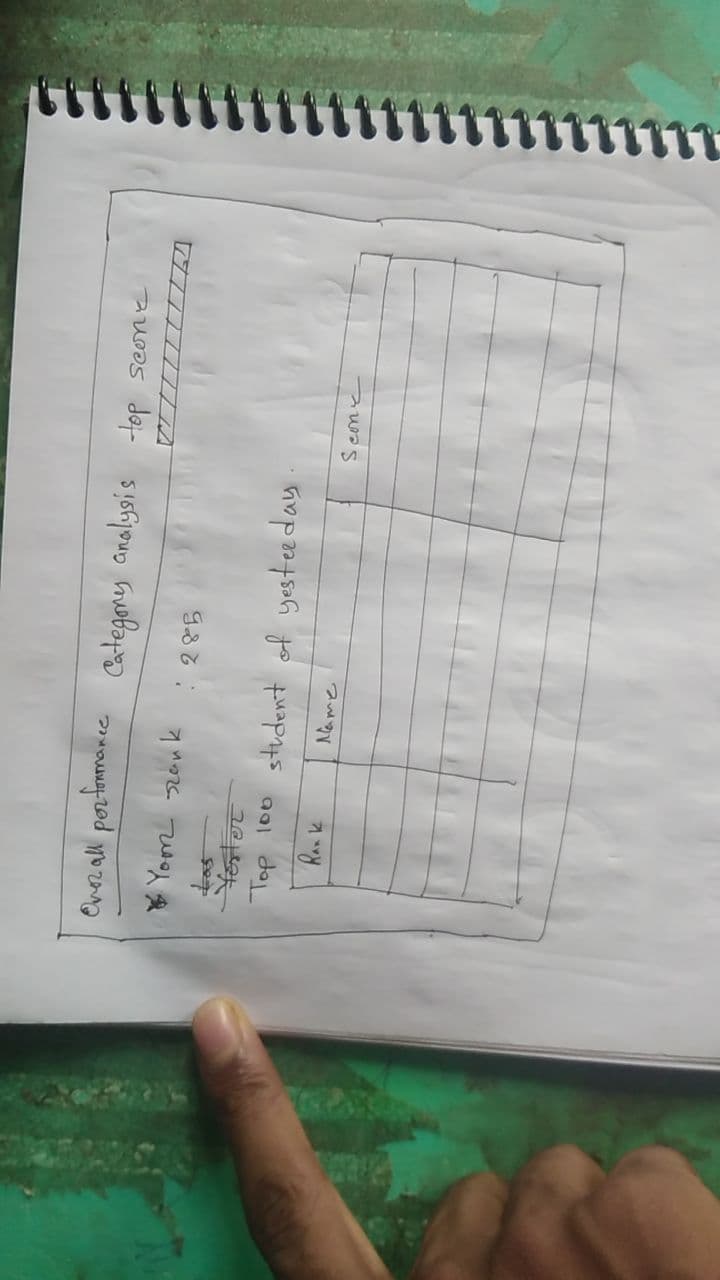 Overall performance Category analysis top score
Your rank : 285
Las
Yester
Top 100 student of yesterday.
Rank Name Score